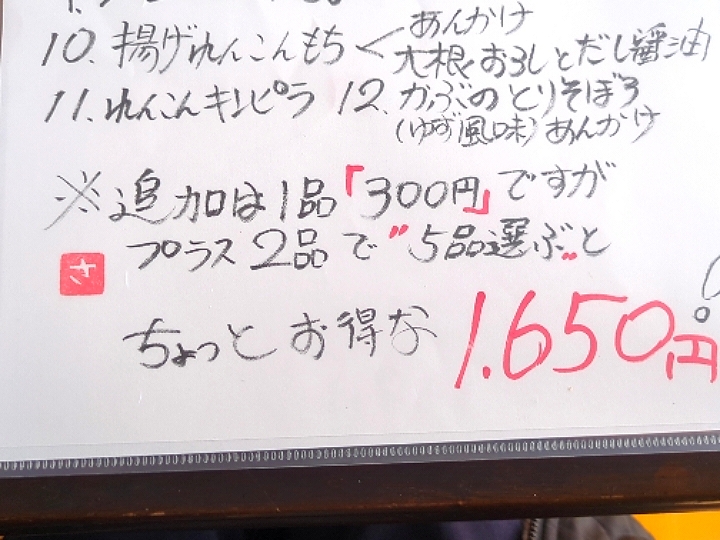 10. 揚げれんこんもち < あんかけ
大根おろしとだし醤油
11. れんこんキンピラ 12. かぶのとりそぼろ
(ゆず風味) あんかけ
※追加は1品「300円」ですが
プラス2品で"5品選ぶ"と
さ
ちょっとお得な 1.650円